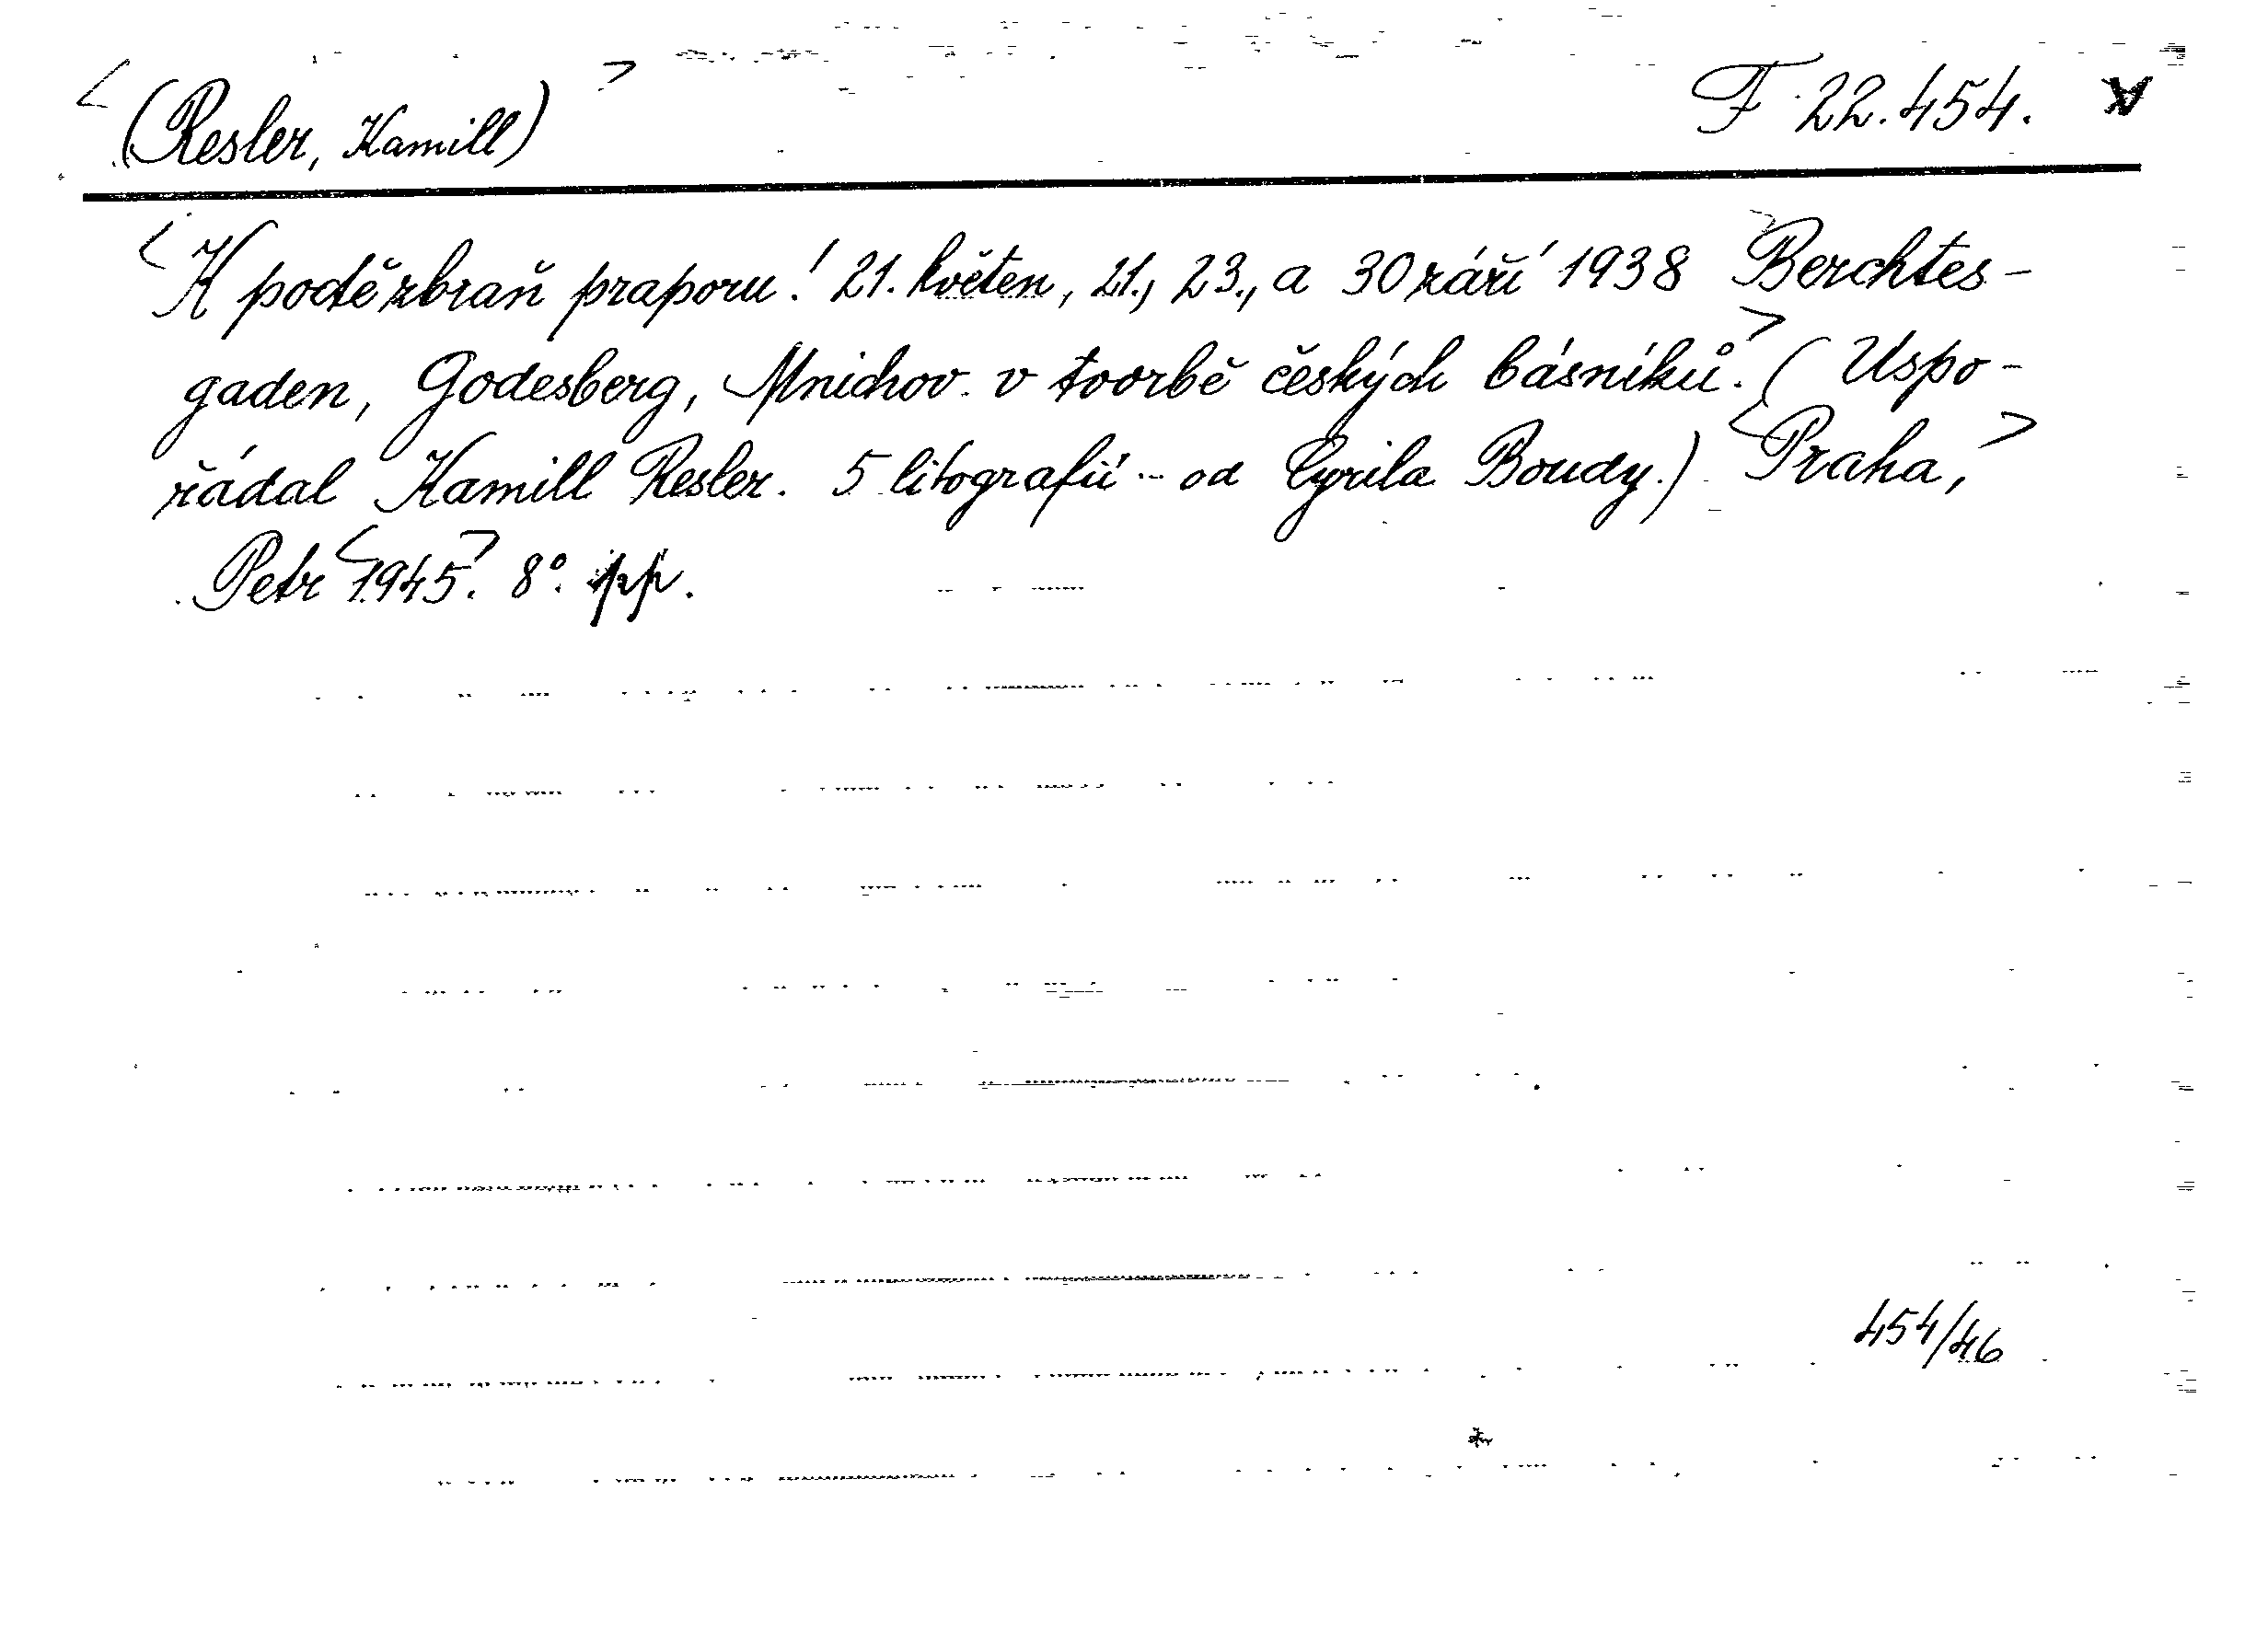 <(Resler, Kamill)> F 22.454.
<K poctě zbraň praporu! 21. květen, 21., 23., a 30 září 1938 Berchtes-
gaden, Godesberg, Mnichov v tvorbě českých básníků.> (Uspo-
řádal Kamill Resler. 5 litografií - od Cyrila Boudy.) <Praha,>
Petr <1945>. 8°. pp.
454/46